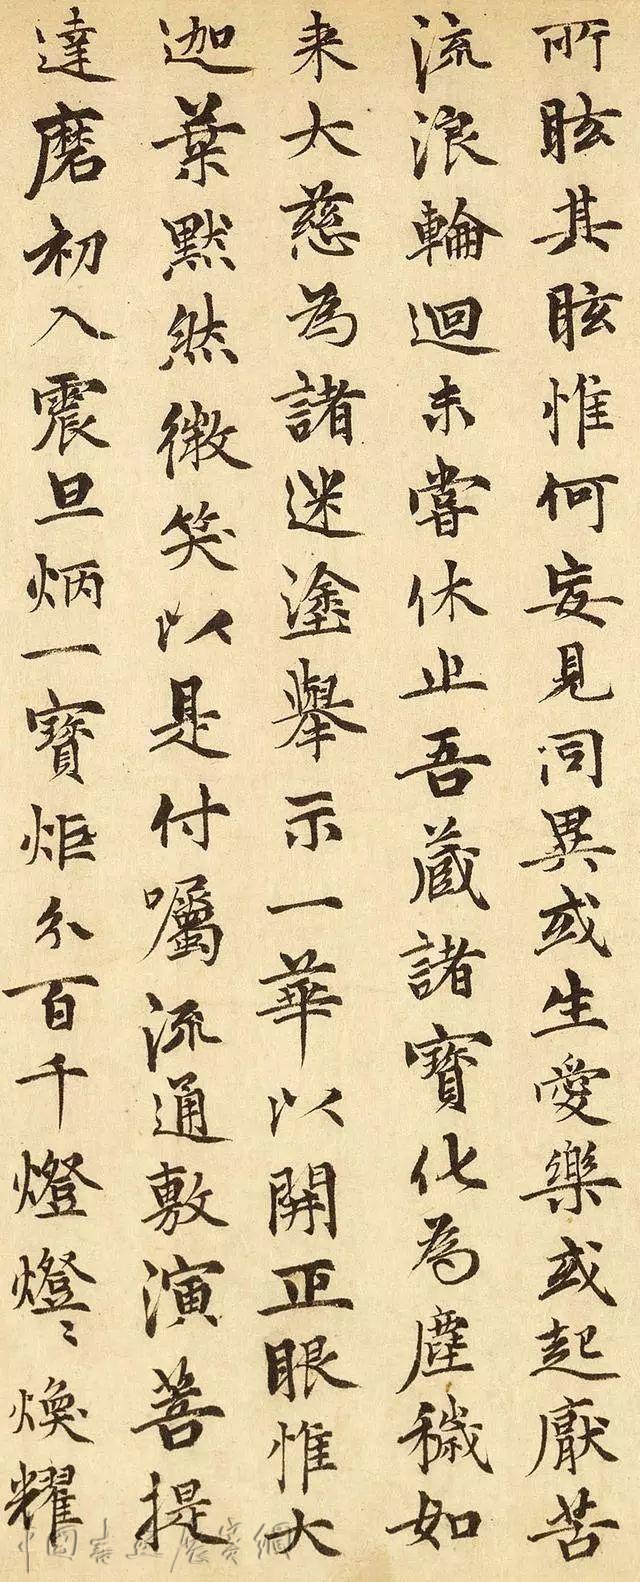 所眩其眩惟何妄見同異或生愛樂或起厭苦
流浪輪迴未嘗休止吾藏諸寶化為塵穢如
来大慈為諸迷塗舉示一華以開正眼惟大
迦葉默然微笑以是付囑流通敷演菩提
達磨初入震旦炳一寶炬分百千燈燈〻煥耀